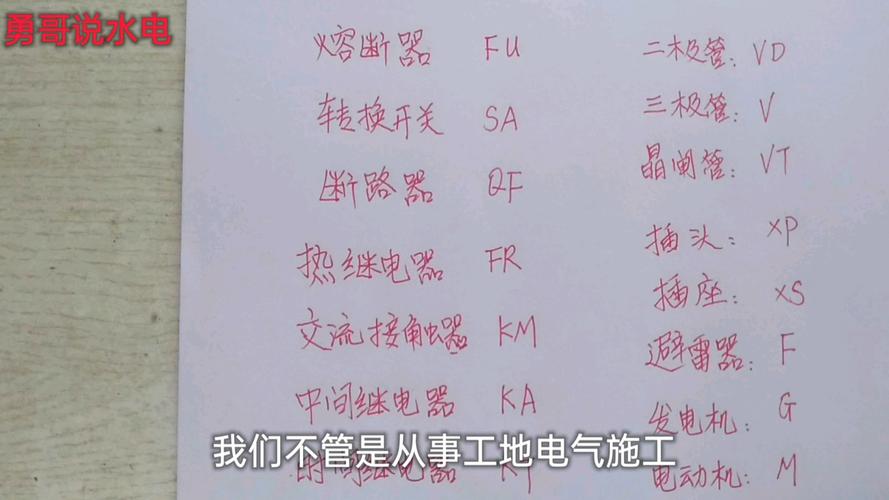 勇哥说水电
熔断器 FU
转换开关 SA
断路器 QF
热继电器 FR
交流接触器 KM
中间继电器 KA
时间继电器 KT
二极管: VD
三极管: V
晶闸管: VT
插头: XP
插座: XS
避雷器: F
发电机: G
电动机: M
我们不管是从事工地电气施工